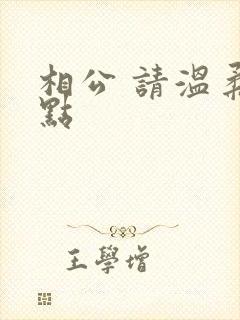 相公 請溫柔
點
王學增